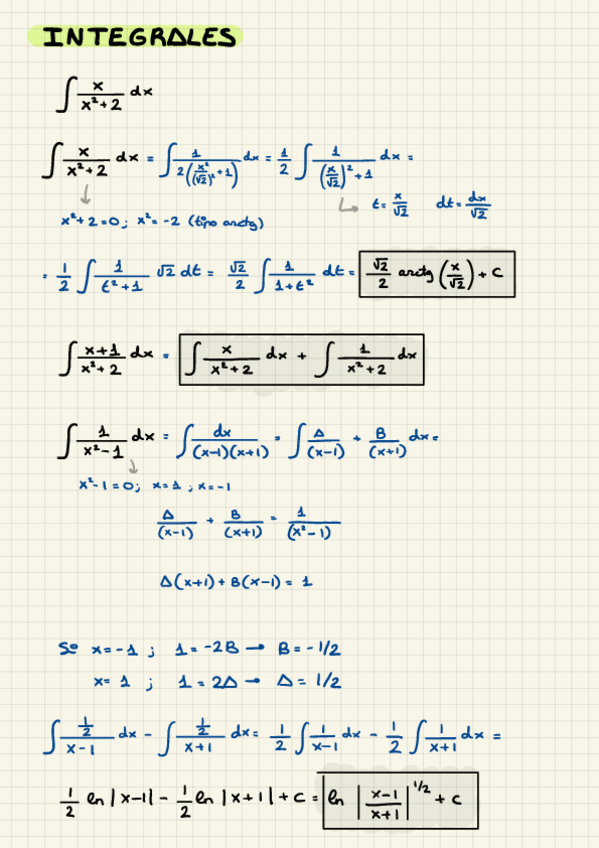 INTEGRALES
∫ x/(x²+2) dx
∫ x/(x²+2) dx = ∫ 1/(2((x²/(√2)²)+1)) dx = 1/2 ∫ 1/((x/√2)²+1) dx =
t = x/√2 dt = dx/√2
x²+2=0; x²=-2 (tipo arctg)
= 1/2 ∫ 1/(t²+1) √2 dt = √2/2 ∫ 1/(1+t²) dt = √2/2 arctg (x/√2) + C
∫ (x+1)/(x²+2) dx = ∫ x/(x²+2) dx + ∫ 1/(x²+2) dx
∫ 1/(x²-1) dx = ∫ dx/((x-1)(x+1)) = ∫ A/(x-1) + B/(x+1) dx =
x²-1=0; x=1; x=-1
A/(x-1) + B/(x+1) = 1/(x²-1)
A(x+1)+B(x-1) = 1
Si x=-1 ; 1=-2B → B=-1/2
x=1 ; 1=2A → A=1/2
∫ (1/2)/(x-1) dx - ∫ (1/2)/(x+1) dx = 1/2 ∫ 1/(x-1) dx - 1/2 ∫ 1/(x+1) dx =
1/2 ln |x-1| - 1/2 ln |x+1| + C = ln |(x-1)/(x+1)|^1/2 + C